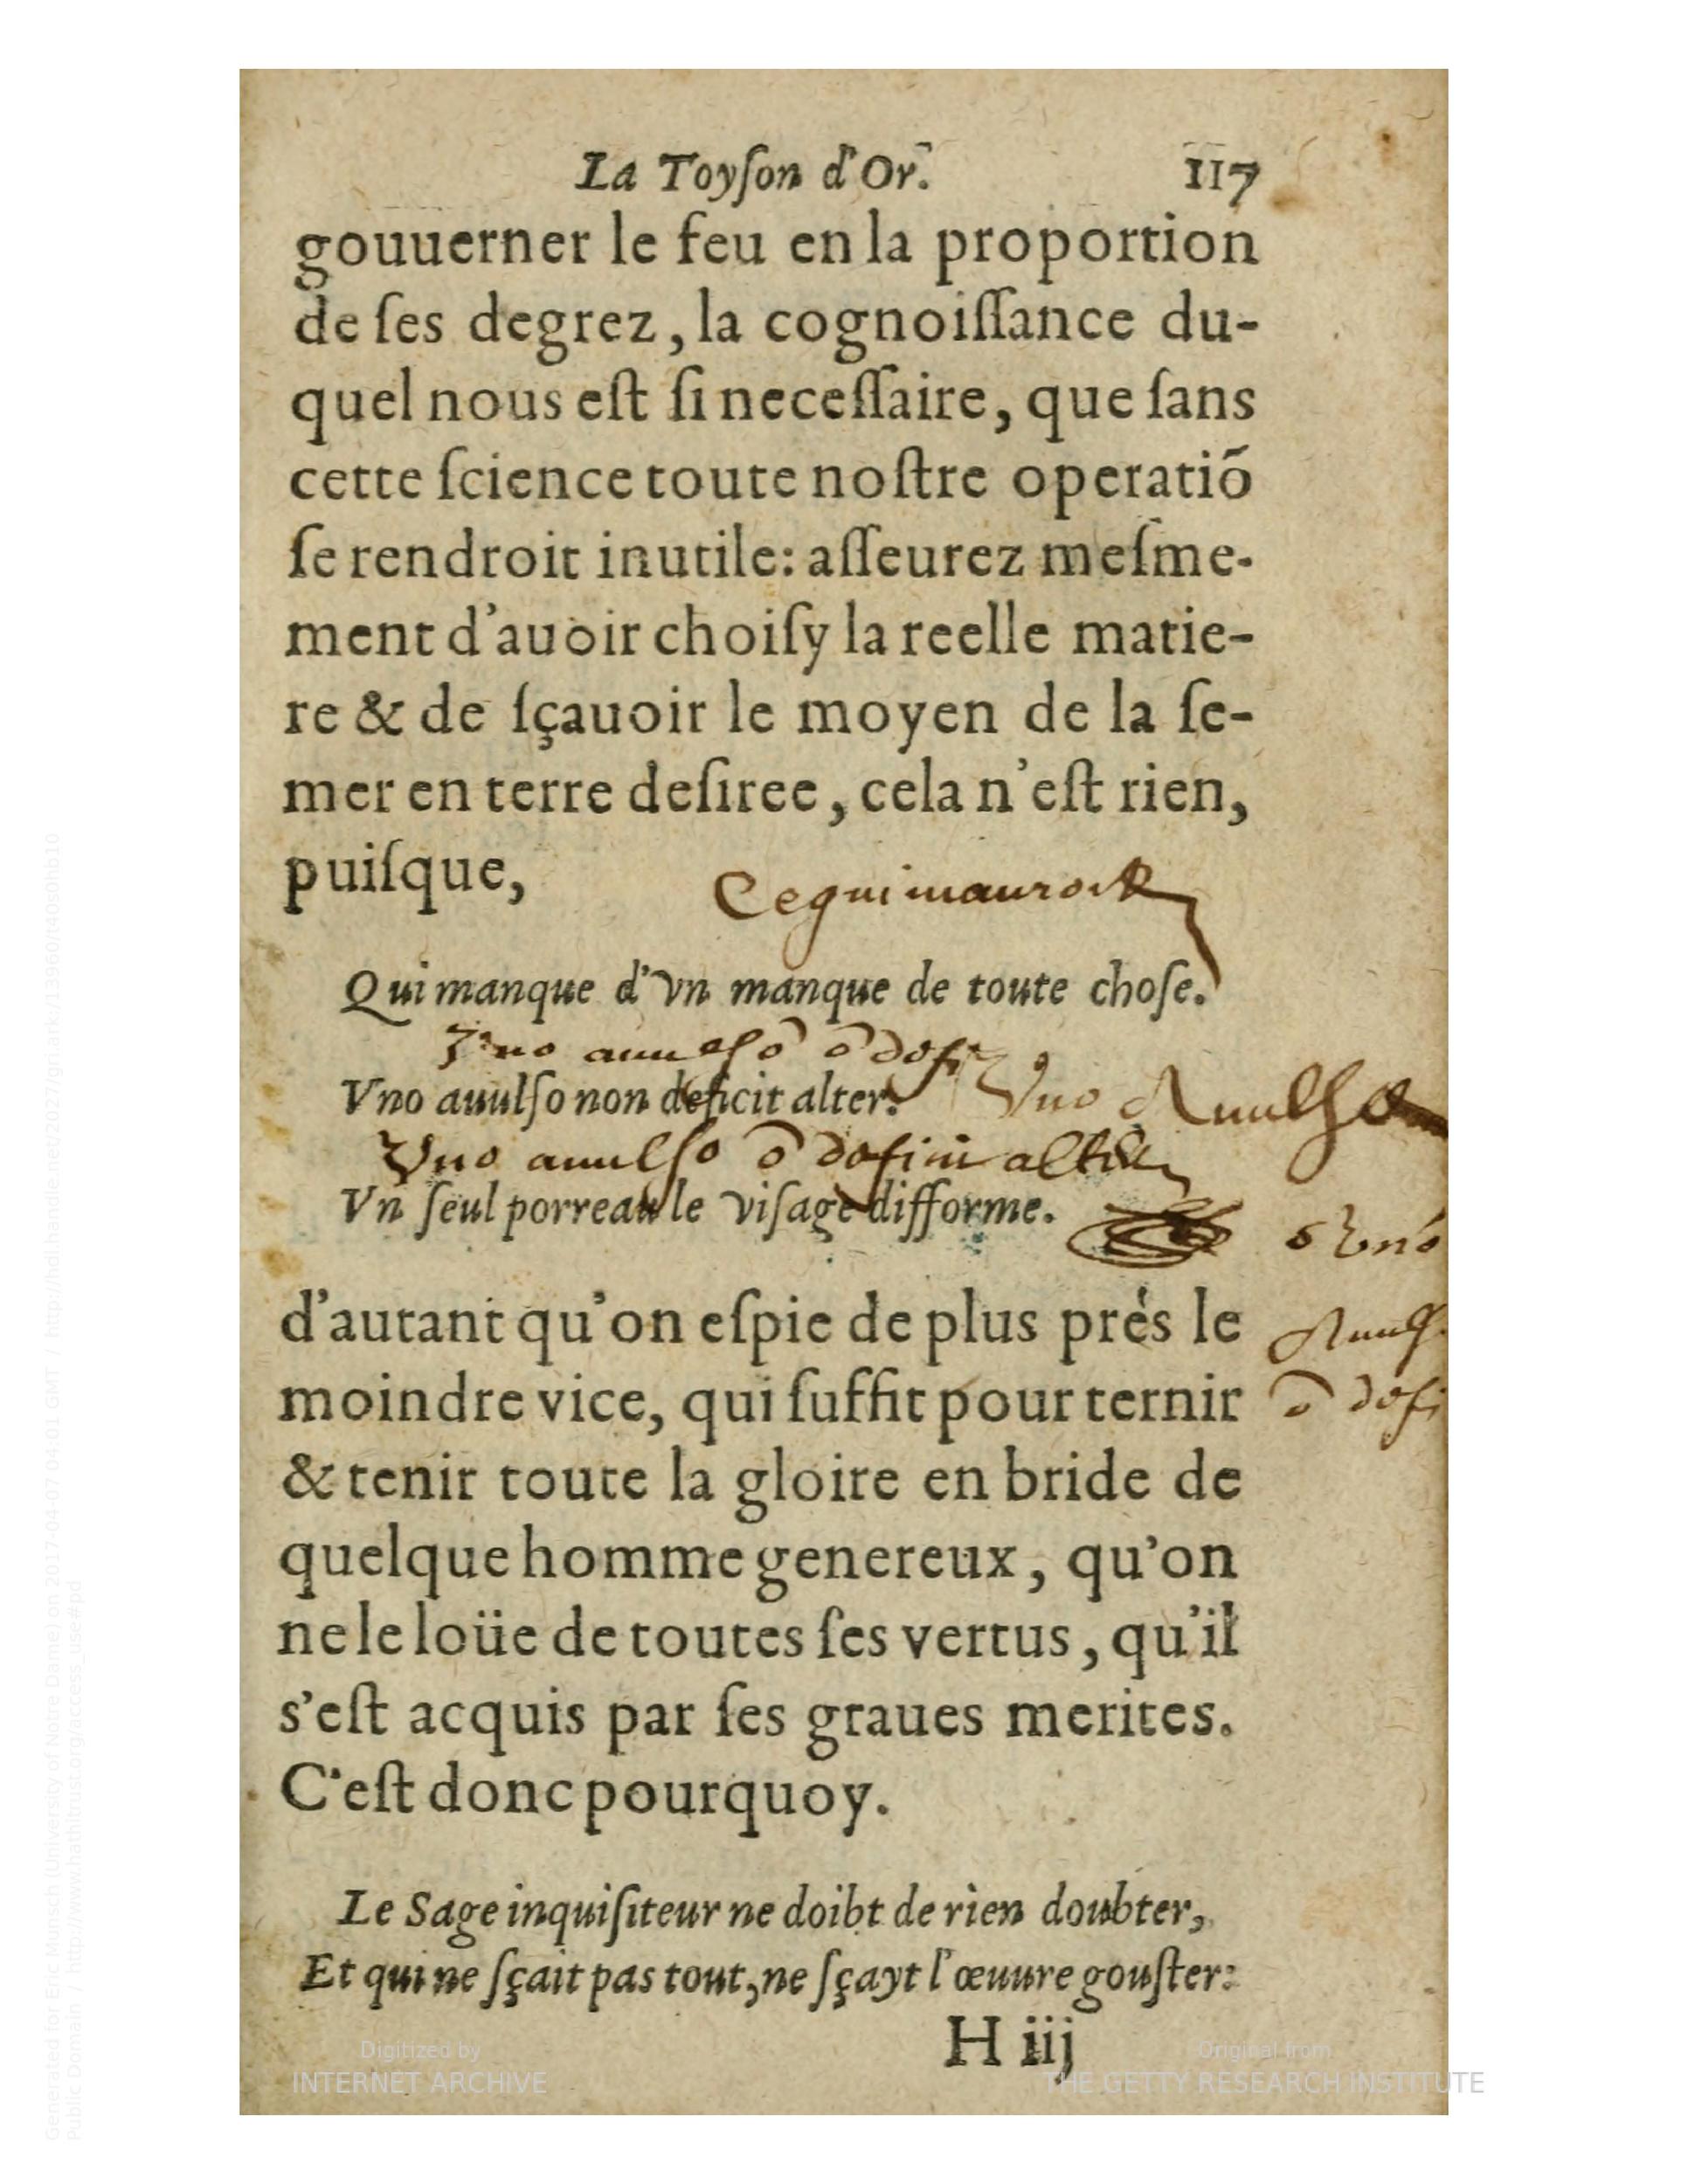 La Toyſon d'Or. 117
gouuerner le feu en la proportion
de ſes degrez, la cognoiſſance du-
quel nous eſt ſi neceſſaire, que ſans
cette ſcience toute noſtre operatiõ
ſe rendroit inutile: aſſeurez meſme-
ment d'auoir choiſy la reelle matie-
re & de ſçauoir le moyen de la ſe-
mer en terre deſiree, cela n'eſt rien,
puiſque,
Qui manque d'vn manque de toute choſe.
Vno auulſo non deficit alter.
Vno Auulſo
Vno auulſo õ
Vn ſeul porreau le viſage difforme.
d'autant qu'on eſpie de plus prés le
moindre vice, qui ſuffit pour ternir
& tenir toute la gloire en bride de
quelque homme genereux, qu'on
ne le loüe de toutes ſes vertus, qu'il
s'eſt acquis par ſes graues merites.
C'eſt donc pourquoy.
Le Sage inquiſiteur ne doibt de rien doubter,
Et qui ne ſçait pas tout, ne ſçayt l'œuure gouſter:
H iij
Digitized by
INTERNET ARCHIVE
Original from
THE GETTY RESEARCH INSTITUTE
Generated for Eric Munsch (University of Notre Dame) on 2017-04-07 04:01 GMT / http://hdl.handle.net/2027/gri.ark:/13960/t40s0hb10
Public Domain / http://www.hathitrust.org/access_use#pd